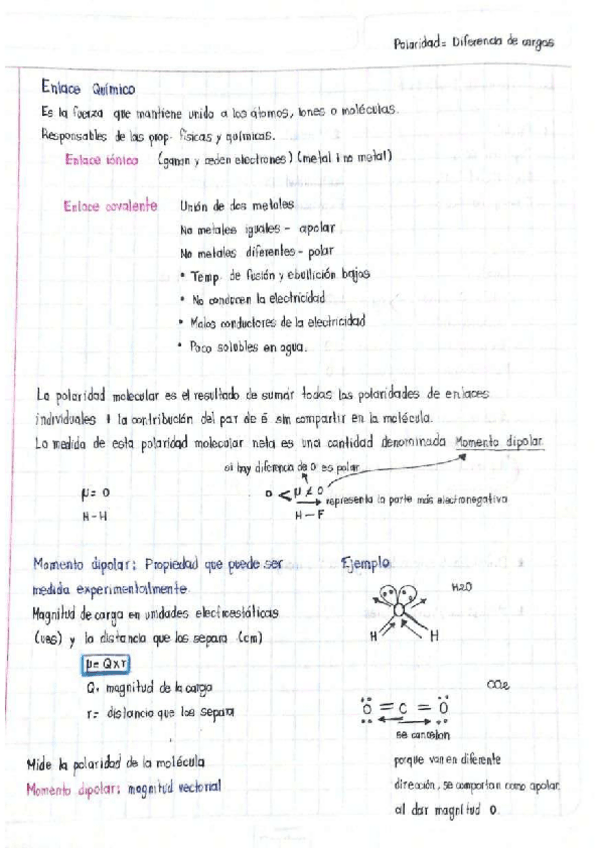 Polaridad= Diferencia de cargas
Enlace Químico
Es la fuerza que mantiene unido a los átomos, iones o moléculas.
Responsables de las prop. físicas y químicas.
Enlace iónico (ganan y ceden electrones) (metal i no metal)
Enlace covalente Unión de dos metales
No metales iguales - apolar
No metales diferentes - polar
• Temp. de fusión y ebullición bajos
• No conducen la electricidad
• Malos conductores de la electricidad
• Poco solubles en agua.
La polaridad molecular es el resultado de sumar todas las polaridades de enlaces
individuales + la contribución del par de é sin compartir en la molécula.
La medida de esta polaridad molecular neta es una cantidad denominada Momento dipolar.
si hay diferencia de 0 es polar
μ= 0
0 < μ ≠ 0
representa la parte más electronegativa
H-H
H-F
Momento dipolar: Propiedad que puede ser
medida experimentalmente.
Magnitud de carga en unidades electroestáticas
(ues) y la distancia que los separa (cm)
μ= Q×r
Q. magnitud de la carga
r= distancia que los separa
Mide la polaridad de la molécula
Momento dipolar: magnitud vectorial
Ejemplo
H2O
O
H H
CO2
O = C = O
se cancelan
porque van en diferente
dirección, se comportan como apolar,
al dar magnitud 0.